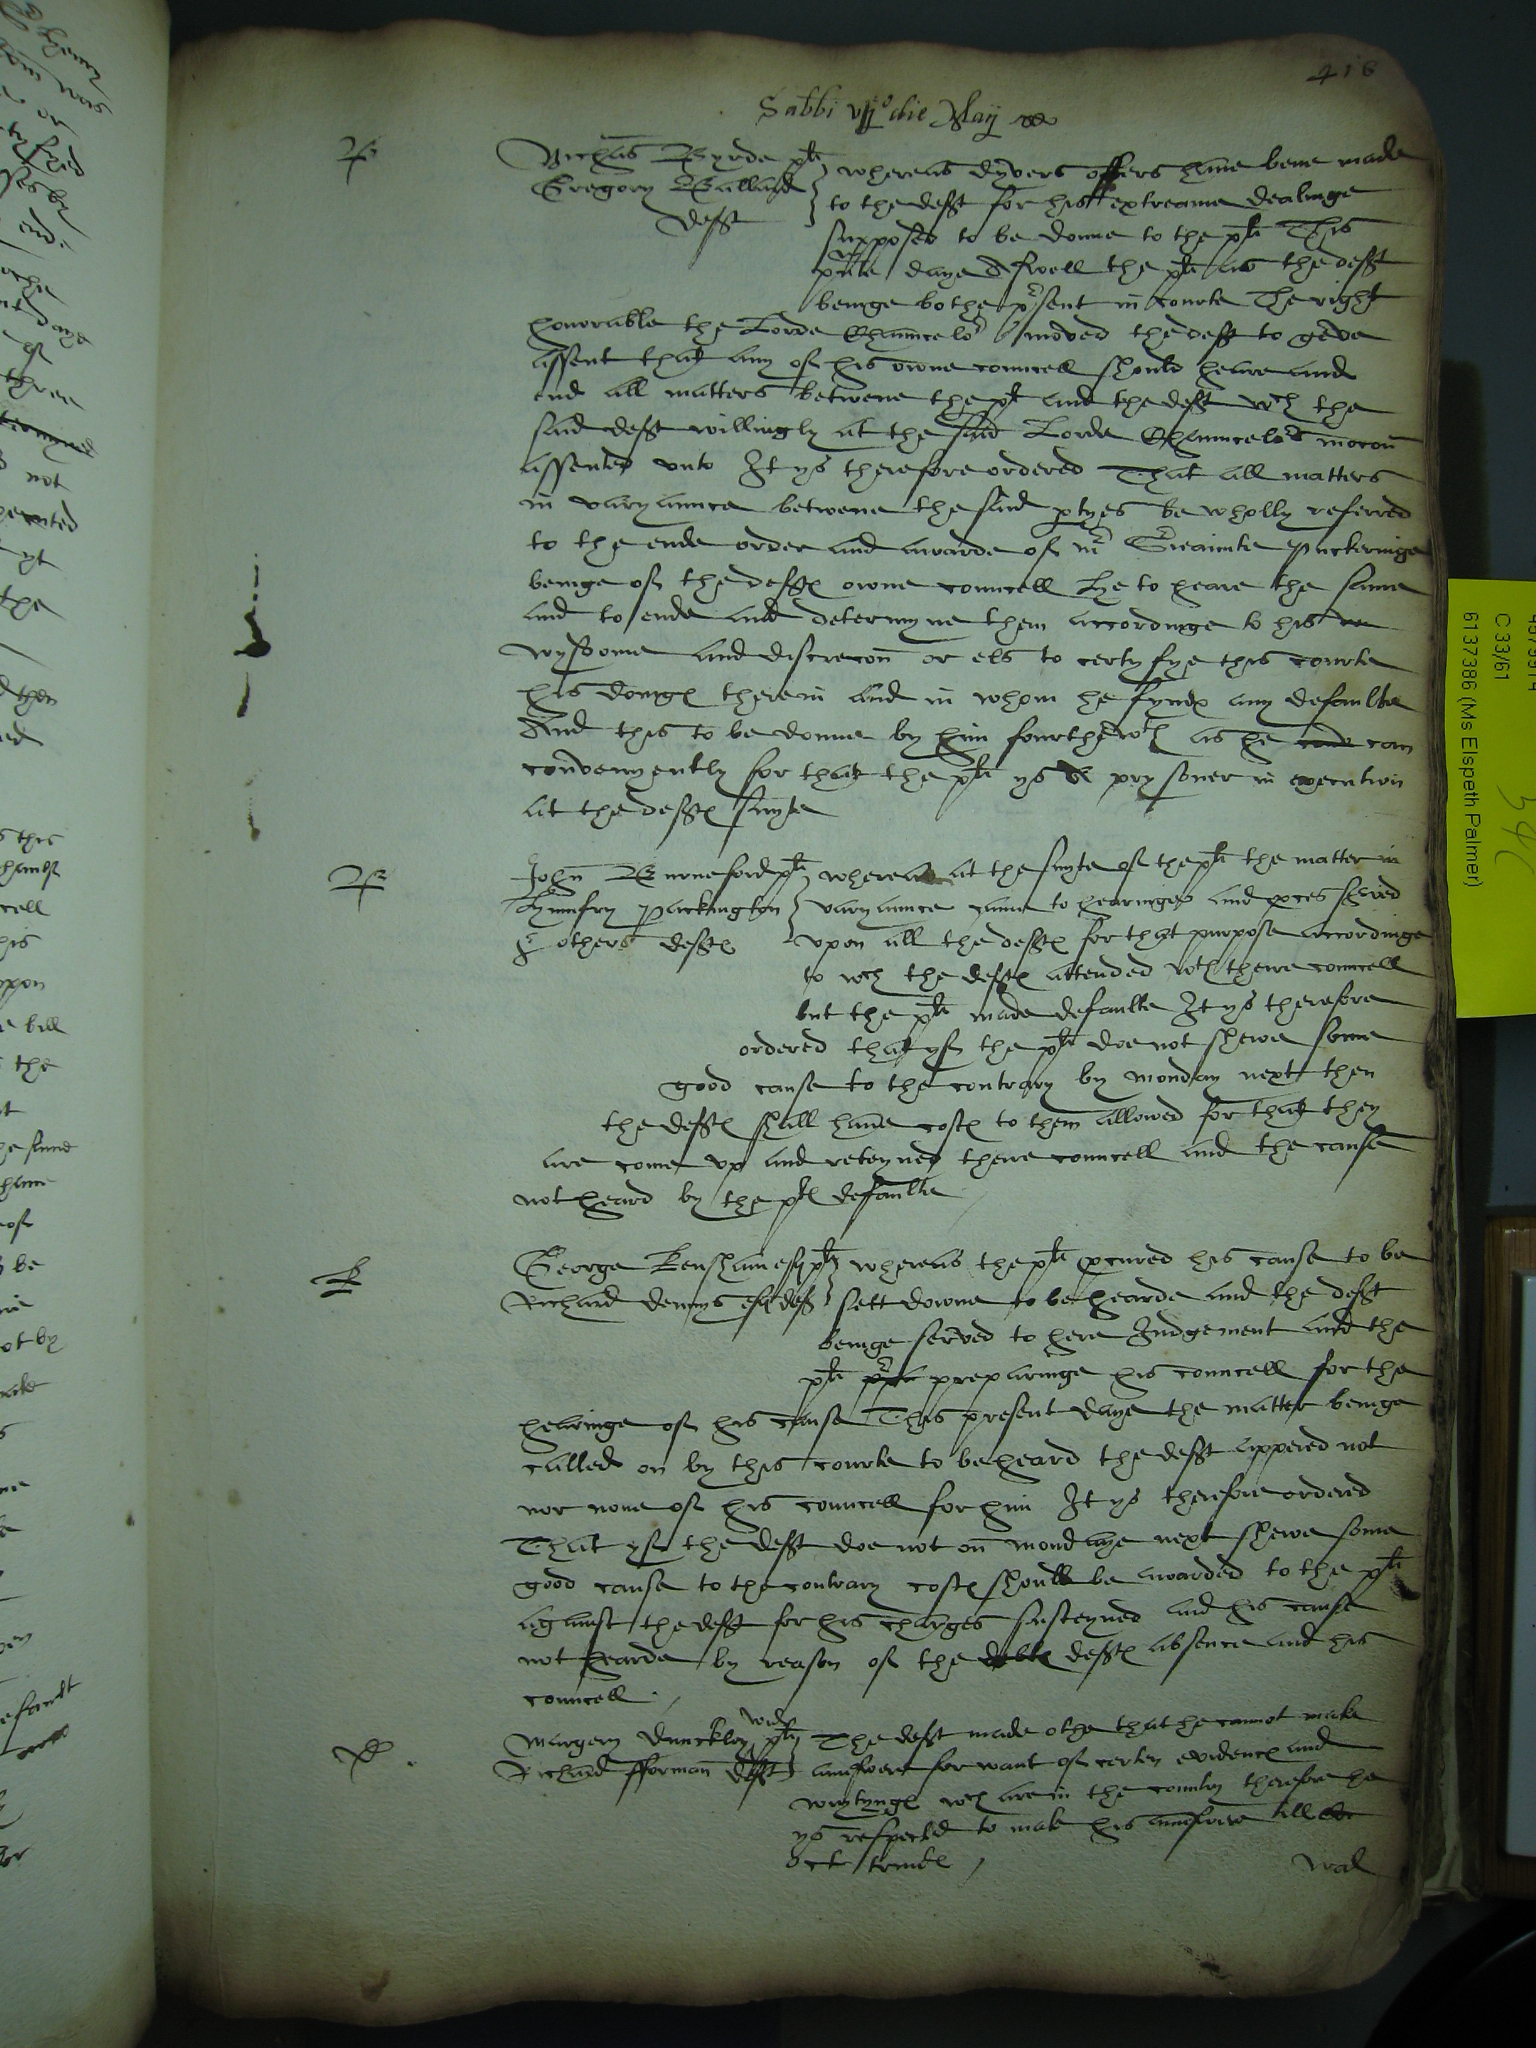 416
Sabbi vijº die Maij
B
Nichãs Byrde plt
Gregory Ballard
deft
whereas dyvers offers have bene made
to the deft for his extreame dealinge
supposed to be donne to the plt This
pñte daye aswell the plt as the deft
beinge bothe pʳsent in courte The right
honorable the Lorde Chauncelor moved the deft to geve
assent that any of his owne councell should heare and
end all matters betwene the plt and the deft wch the
said deft willingly at the said Lorde Chauncelors mocoñ
assented unto It ys therefore ordered That all matters
in varyaunce betwene the said ptyes be wholly referred
to the ende order and awarde of mʳ Sreaiunte Puckeringe
beinge of the defts owne councell he to heare the same
and to ende and determyne them accordinge to his
wyssdome and discrecoñ or els to certyfye this courte
his doings therein And in whom he fynds any defaulte
And this to be donne by him fourthewth as he can
convenyently for that the plt ys prysoner in execution
at the defts suyte
B
John Burneford plt
Humfry Packington
& others defts
whereas at the suyte of the plt the matter in
varyaunce came to hearinge and pces served
upon all the defts for that purpose accordinge
to wch the defts attended wth theire councell
but the plt made defaulte It ys therefore
ordered that yf the plt doe not shewe some
good cause to the contrary by monday next then
the defts shall have costs to them allowed for that they
are come up and reteyned theire councell and the cause
not heard by the plts defaulte
George Kensham esq plt
Richard dennys esq deft
whereas the plt pcured his cause to be
sett downe to be hearde and the deft
beinge served to here Judgement and the
plt preparinge his councell for the
hearinge of his cause This present daye the matter beinge
called on by this courte to be heard the deft appered not
nor none of his councell for him It ys therefore ordered
That yf the deft doe not on mondaye next shewe some
good cause to the contrary costs should be awarded to the plt
against the deft for his charges susteyned and his cause
not hearde by reason of the defts absence and his
councell
Margery Dunckley wid plt
Richard fforman deft
The deft made othe that he cannot make
aunswere for want of certen evidencs and
wrytyngs wch are in the countrey therefore he
ys respected to make his aunswere till
Oct trinits
Wal
C 33/61
6137386 (Ms Elspeth Palmer)